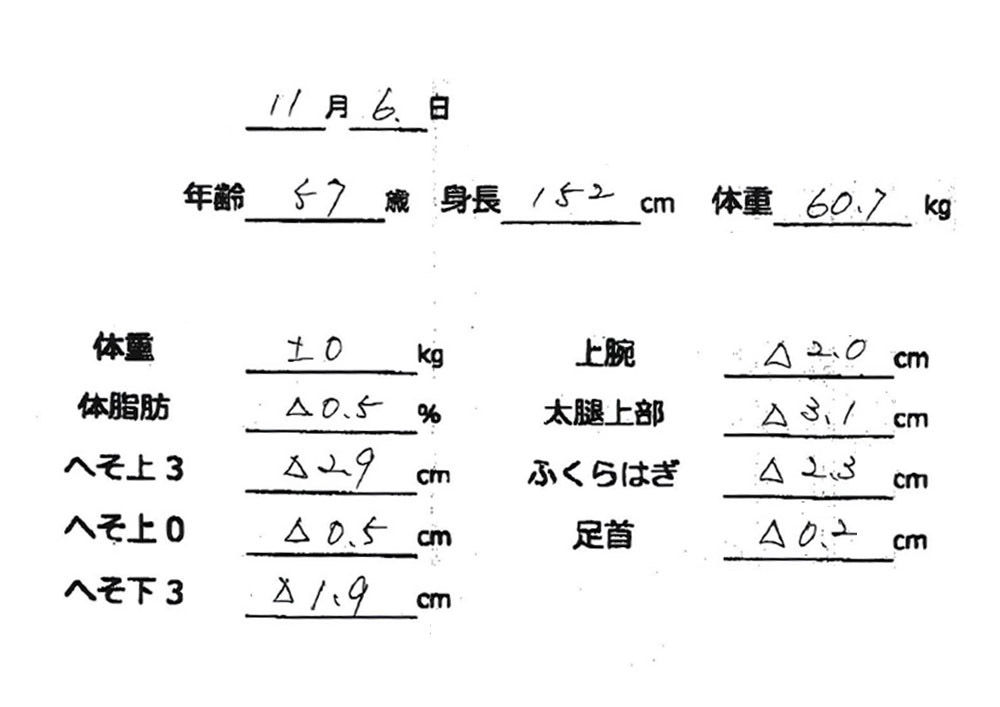 11月6.日
年齢 57 歳 身長 152 cm 体重 60.7 kg
体重 ±0 kg 上腕 △2.0 cm
体脂肪 △0.5 % 太腿上部 △3.1 cm
へそ上3 △2.9 cm ふくらはぎ △2.3 cm
へそ上0 △0.5 cm 足首 △0.2 cm
へそ下3 △1.9 cm